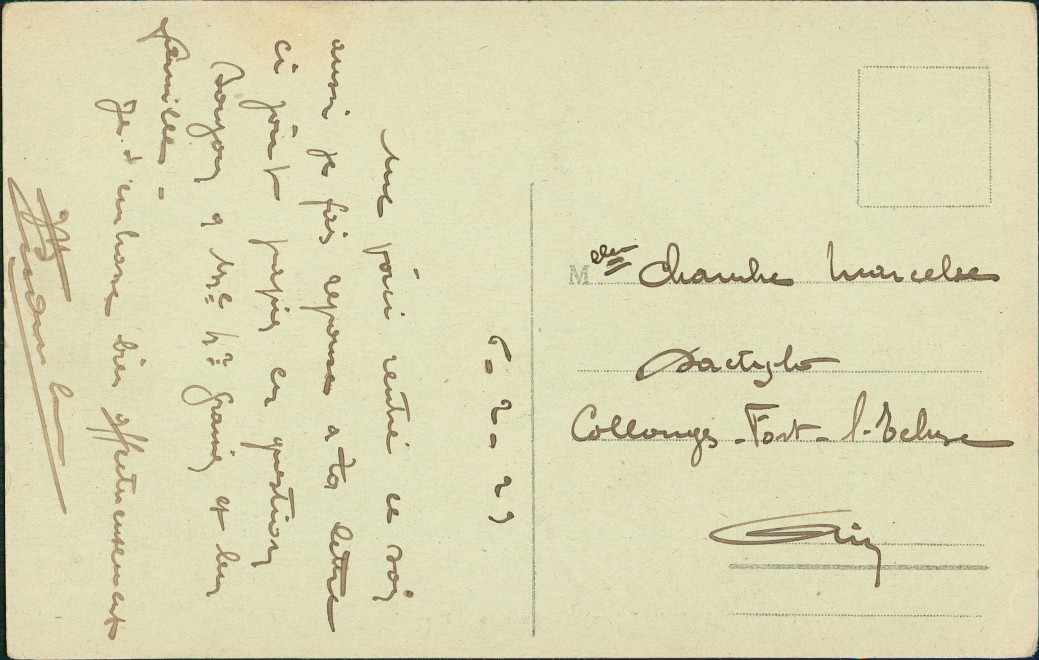 6-2-29
Me voici rentré ce soir
aussi je fais réponse à ta lettre
ci joint papier en question
Bonjour à Mr et Mme et leur
famille -
Je t'embrasse bien affectueusement
Melle Chambre Marcelle
Dactylo
Collonges-Fort-l'Ecluse
Ain